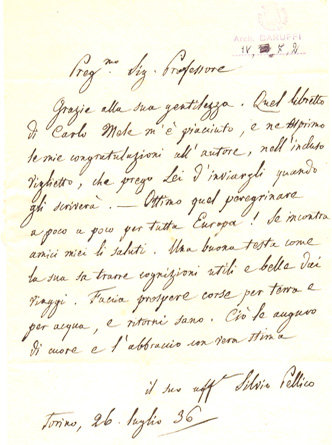 Arch. BARUFFI
IV, 7, 2
Preg.mo Sig. Professore
Grazie alla sua gentilezza. Quel libretto
di Carlo Mele m'è piaciuto, e ne esprimo
le mie congratulazioni all'autore, nell'incluso
viglietto, che prego Lei d'inviargli quando
gli scriverà. — Ottimo quel peregrinare
a poco a poco per tutta Europa! Se incontra
amici miei li saluti. Una buona testa come
la sua sa trarre cognizioni utili e belle dai
viaggi. Faccia prospere corse per terra e
per acqua, e ritorni sano. Ciò le auguro
di cuore e l'abbraccio con vera stima
il suo aff. Silvio Pellico
Torino, 26 luglio 36